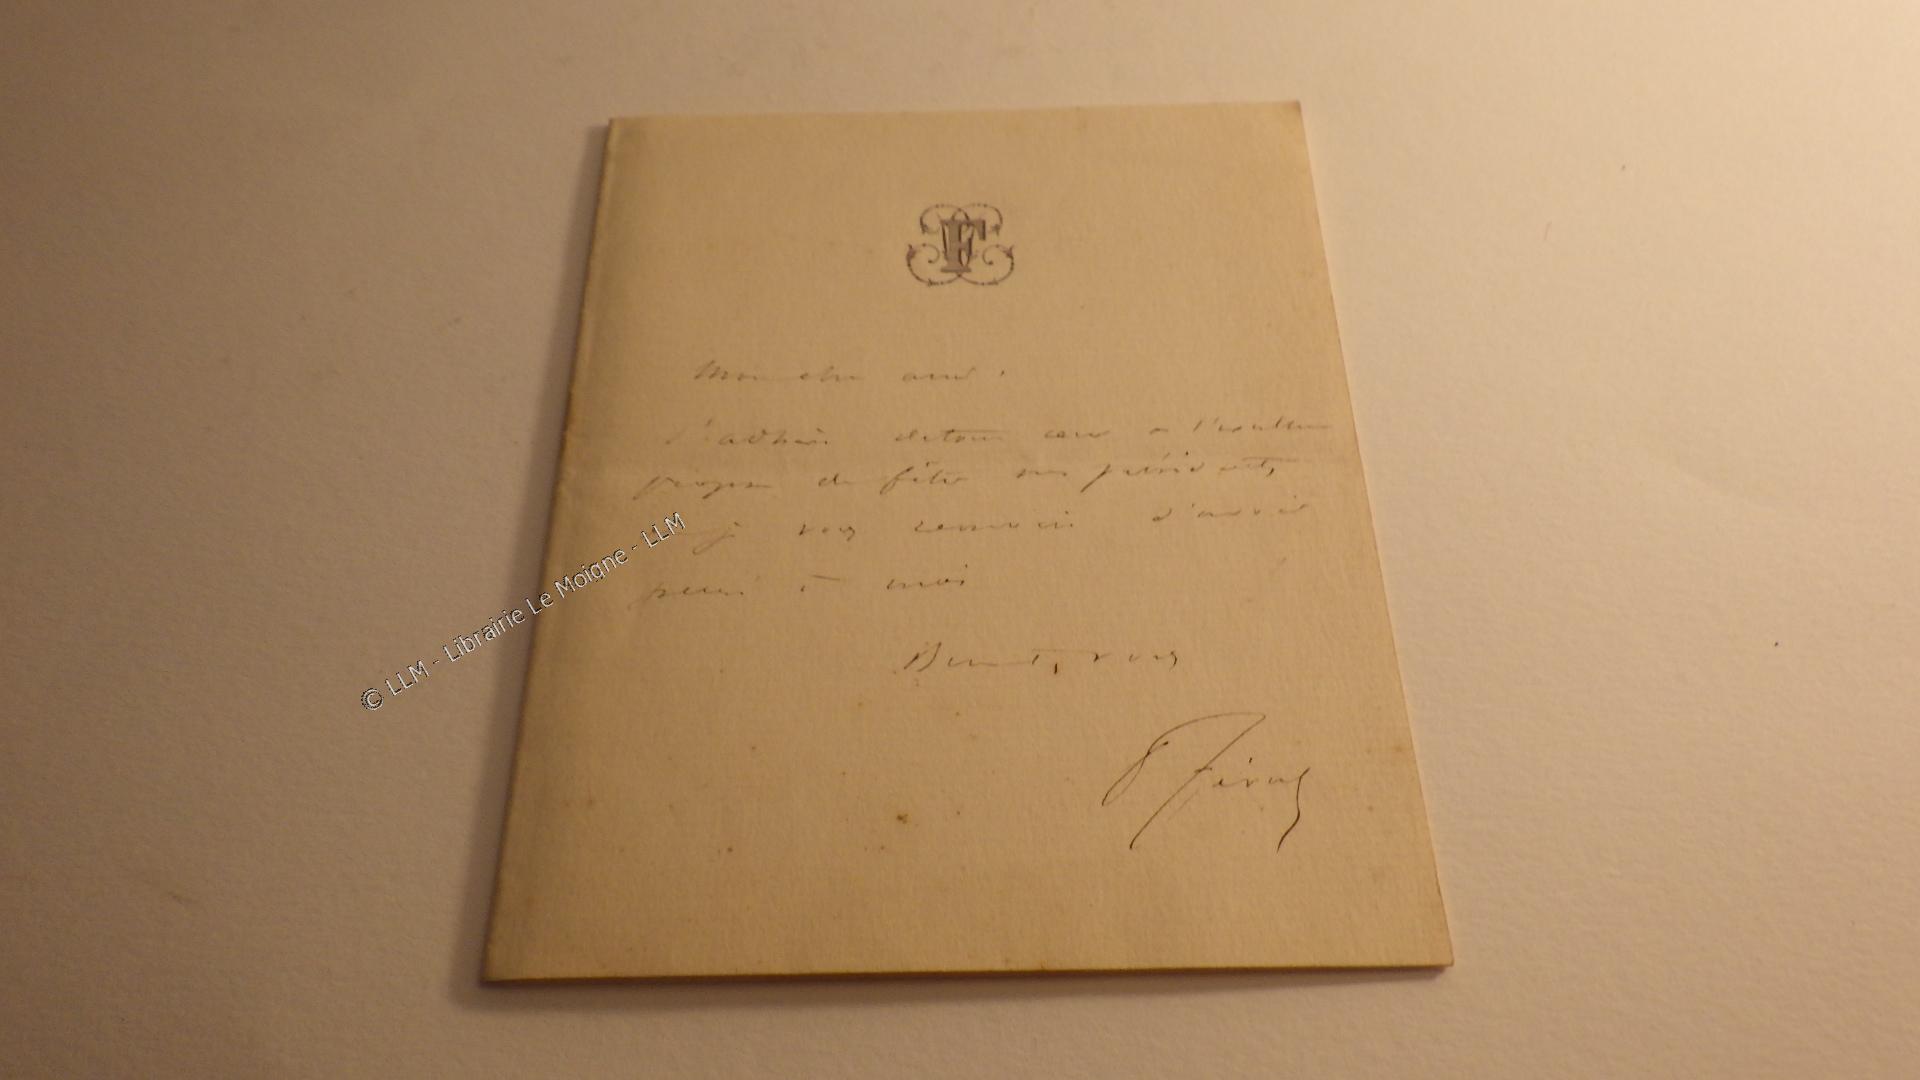 F
Mon cher ami,
J'adhère de tout cœur à l'excellent
propos de fêter
je vous remercie d'avoir
pensé à moi
Bien à vous
© LLM - Librairie Le Moigne - LLM